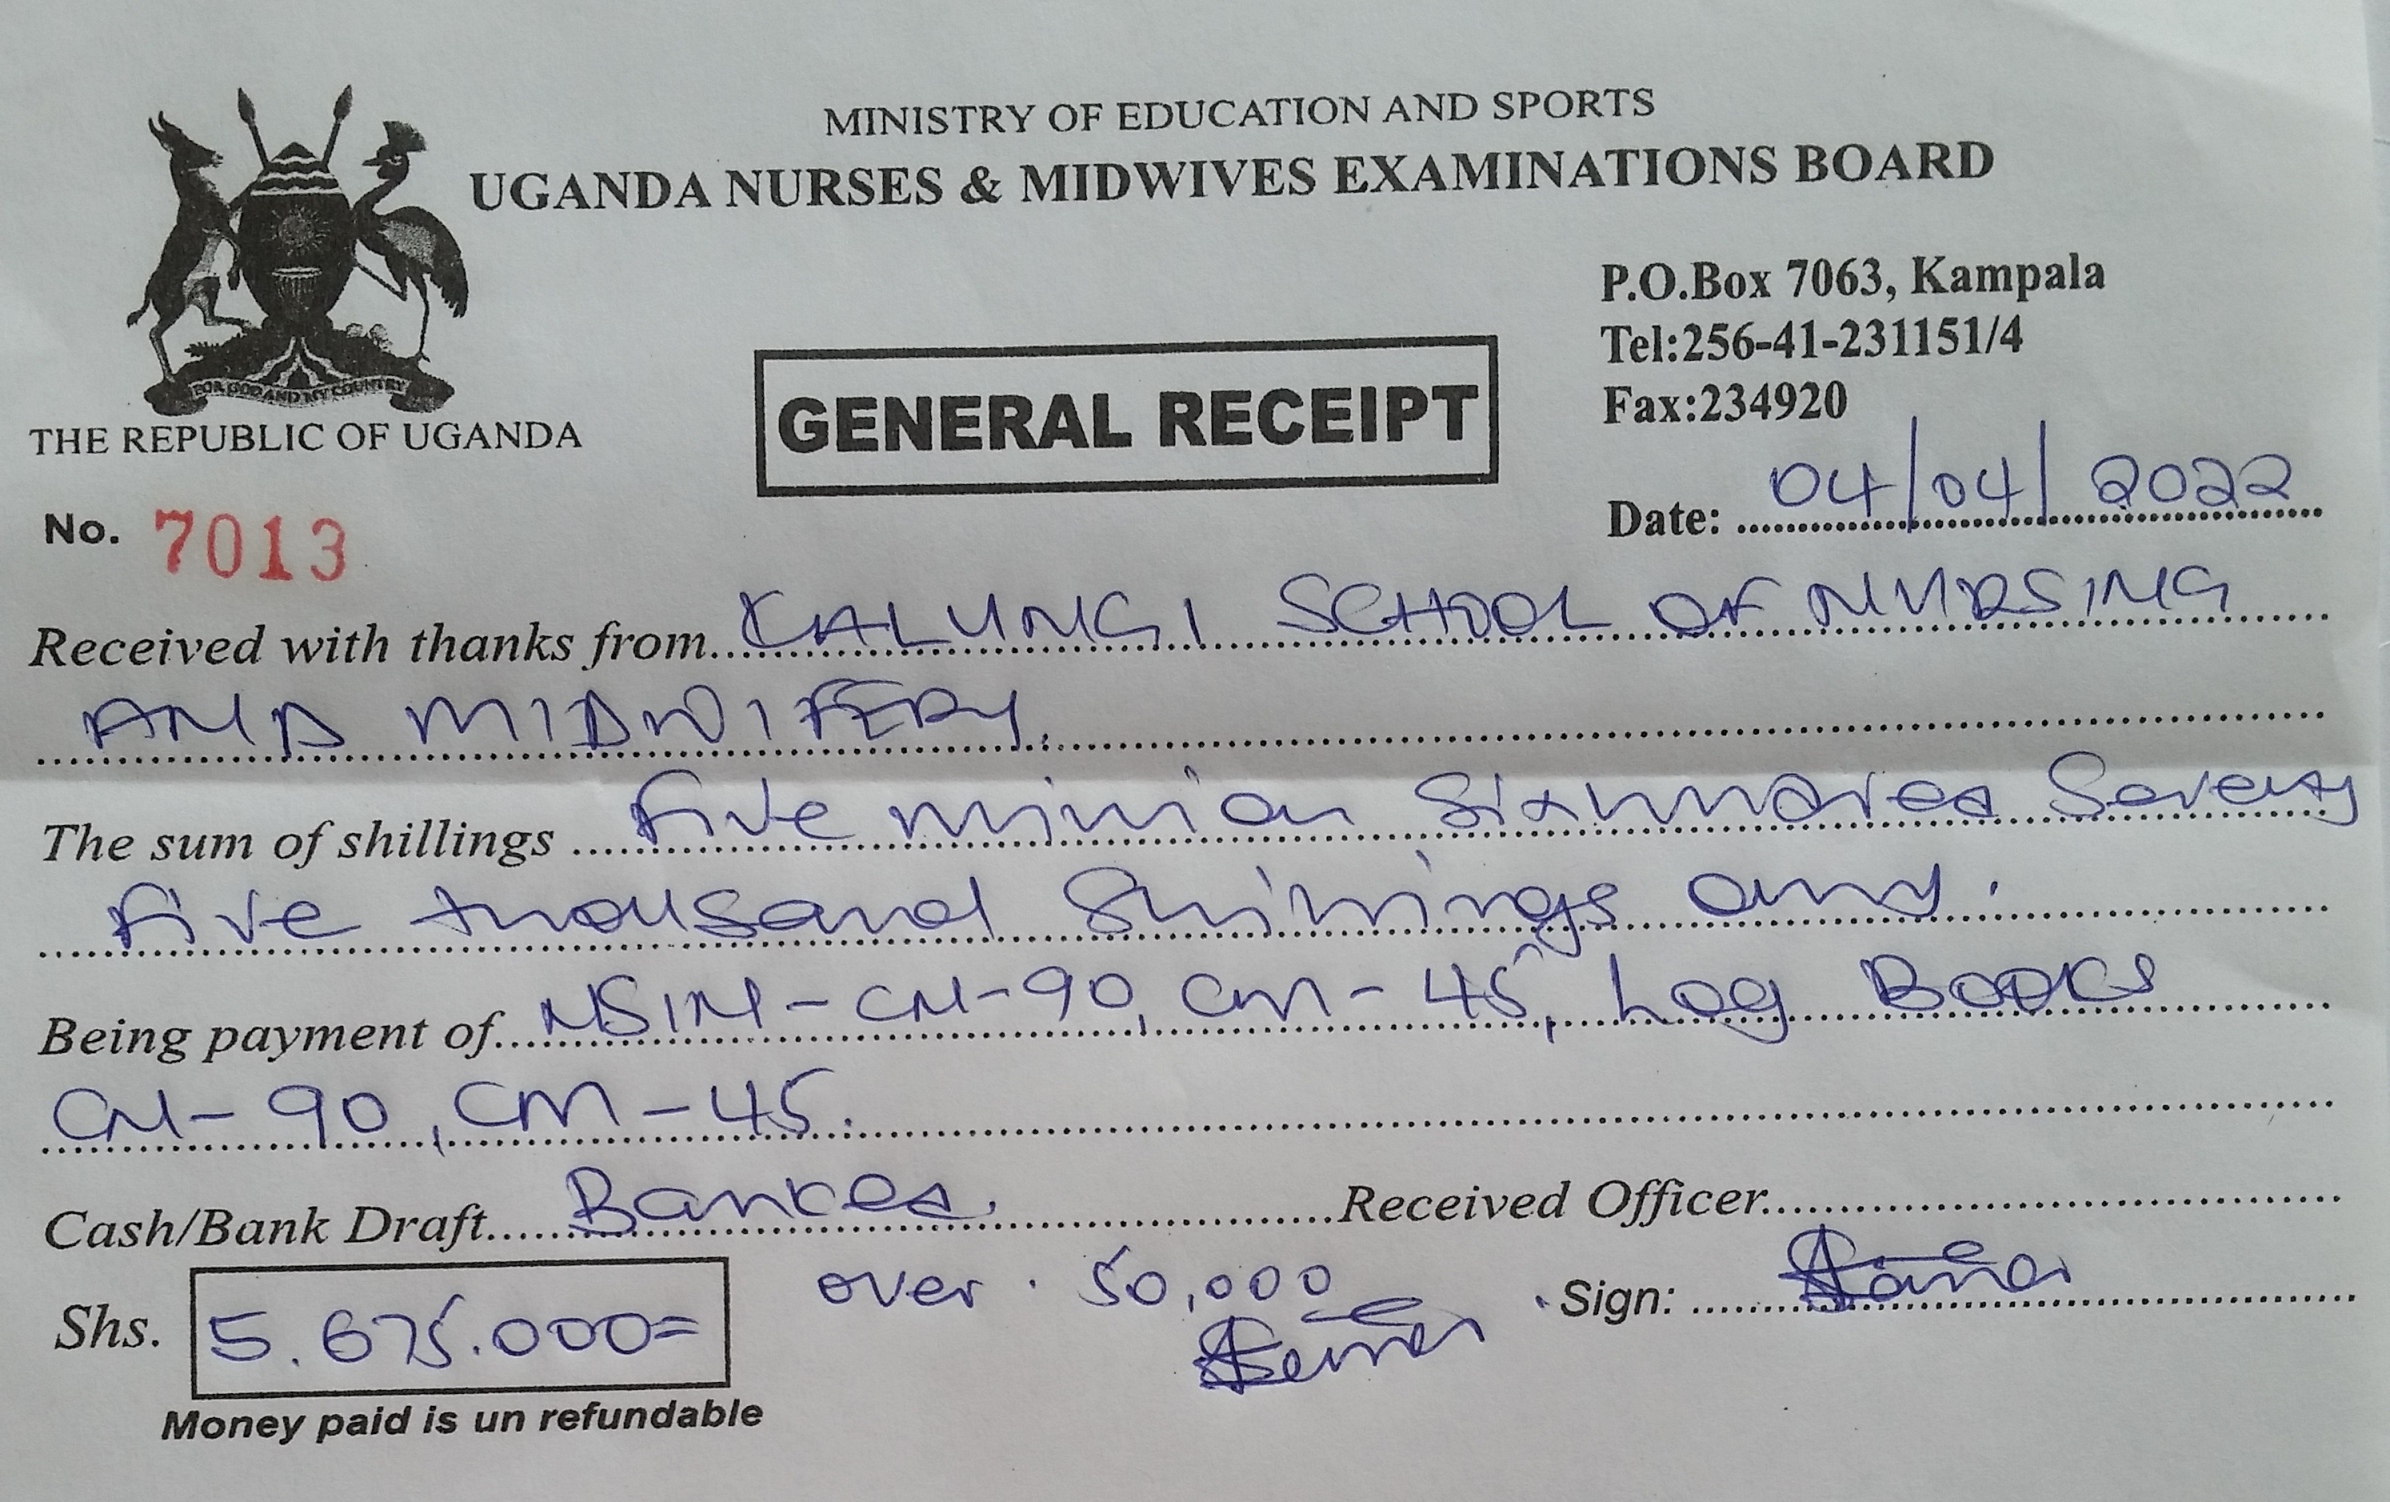 MINISTRY OF EDUCATION AND SPORTS
UGANDA NURSES & MIDWIVES EXAMINATIONS BOARD
THE REPUBLIC OF UGANDA
P.O.Box 7063, Kampala
Tel:256-41-231151/4
Fax:234920
GENERAL RECEIPT
No. 7013
Date: 04/04/2022
Received with thanks from KALUNGI SCHOOL OF NURSING
AND MIDWIFERY
The sum of shillings five million six hundred seventy
five thousand shillings only
Being payment of NSIN - CN-90, CM-45, Log Books
CN-90, CM-45
Cash/Bank Draft Banked. Received Officer
Shs. 5.675.000=
over. 50,000
Sign:
Money paid is un refundable